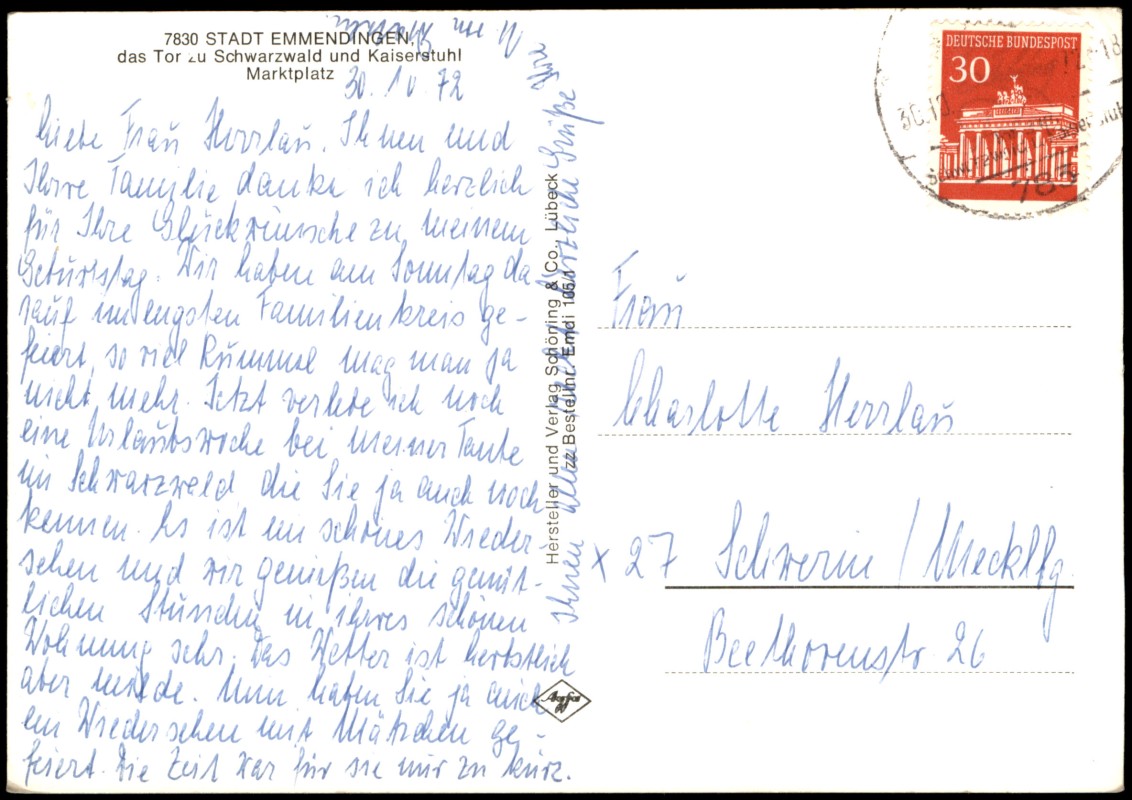 7830 STADT EMMENDINGEN,
das Tor zu Schwarzwald und Kaiserstuhl
Marktplatz
30. 10. 72
Liebe Frau Herrlau, Ihnen und
Ihrer Familie danke ich herzlich
für Ihre Glückwünsche zu meinem
Geburtstag. Wir haben am Sonntag da-
rauf im engsten Familienkreis ge-
feiert, so viel Rummel mag man ja
nicht mehr. Jetzt verlebe ich noch
eine Urlaubswoche bei meiner Tante
im Schwarzwald die Sie ja auch noch
kennen. Es ist ein schönes Wieder-
sehen und wir genießen die gemüt-
lichen Stunden in ihrer schönen
Wohnung sehr. Das Wetter ist herbstlich
aber milde. Nun haben Sie ja auch
ein Wiedersehen mit Mätzchen ge-
feiert. Die Zeit war für sie nur zu kurz.
Ihnen allen herzliche Grüße
Ihre
Hersteller und Verlag Schöning & Co., Lübeck
zz Bestellnr. Emdi 105/1
Agfa
DEUTSCHE BUNDESPOST
30
30.10.
72-18
783
Frau
Charlotte Herrlau
x 27 Schwerin / Mecklbg
Beethovenstr. 26